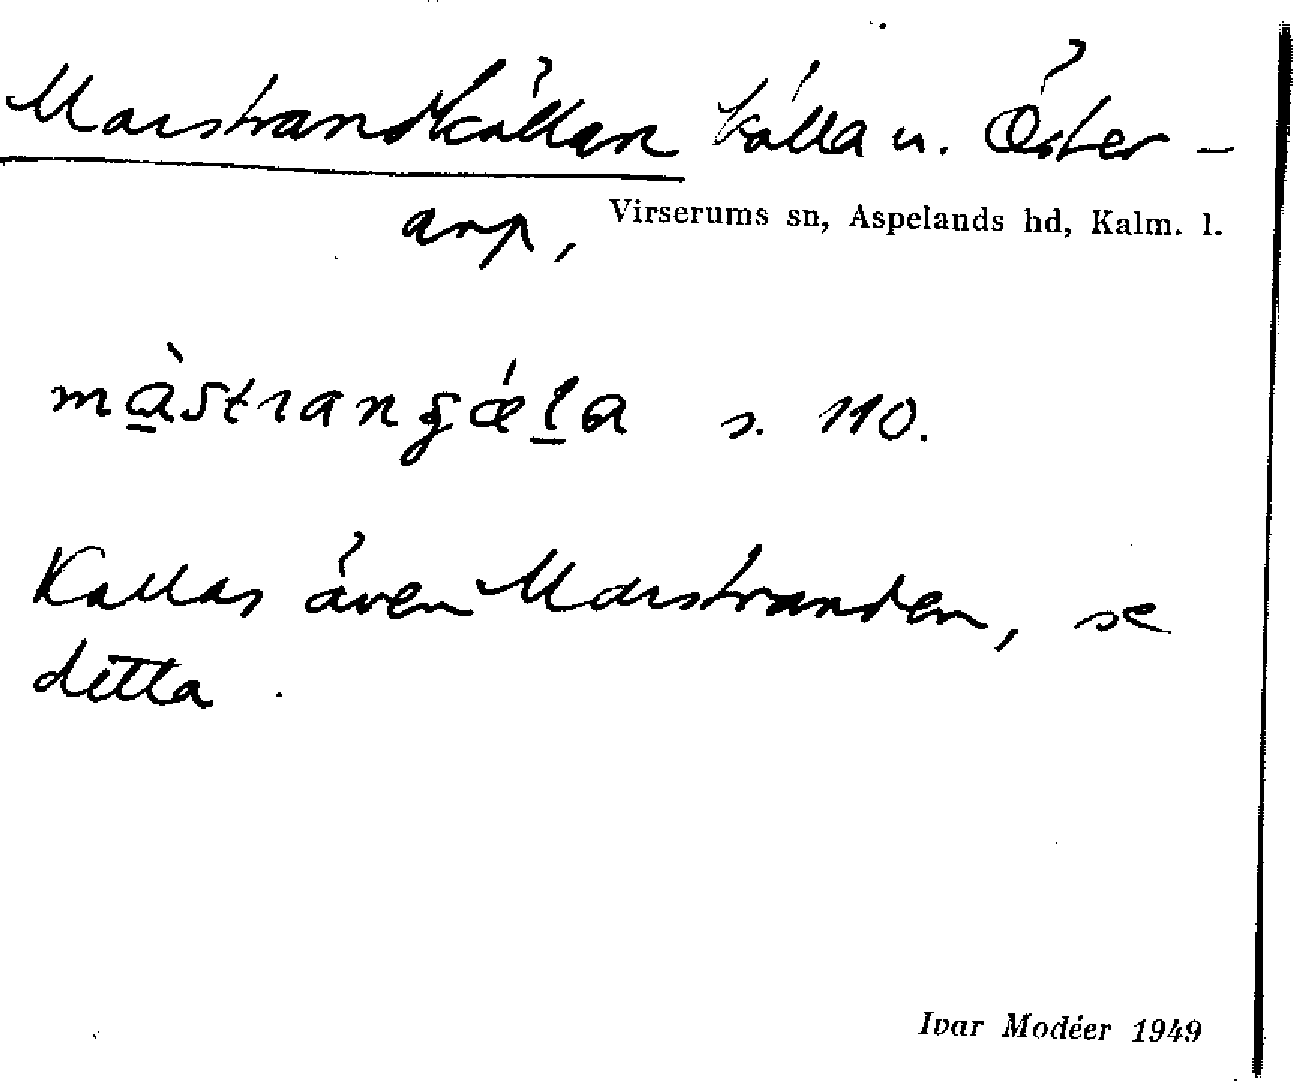 Marstrandkällan källa u. Öster-
arp, Virserums sn, Aspelands hd, Kalm. l.
màstrangǽla s. 110.
Kallas även Marstranden, se
detta.
Ivar Modéer 1949